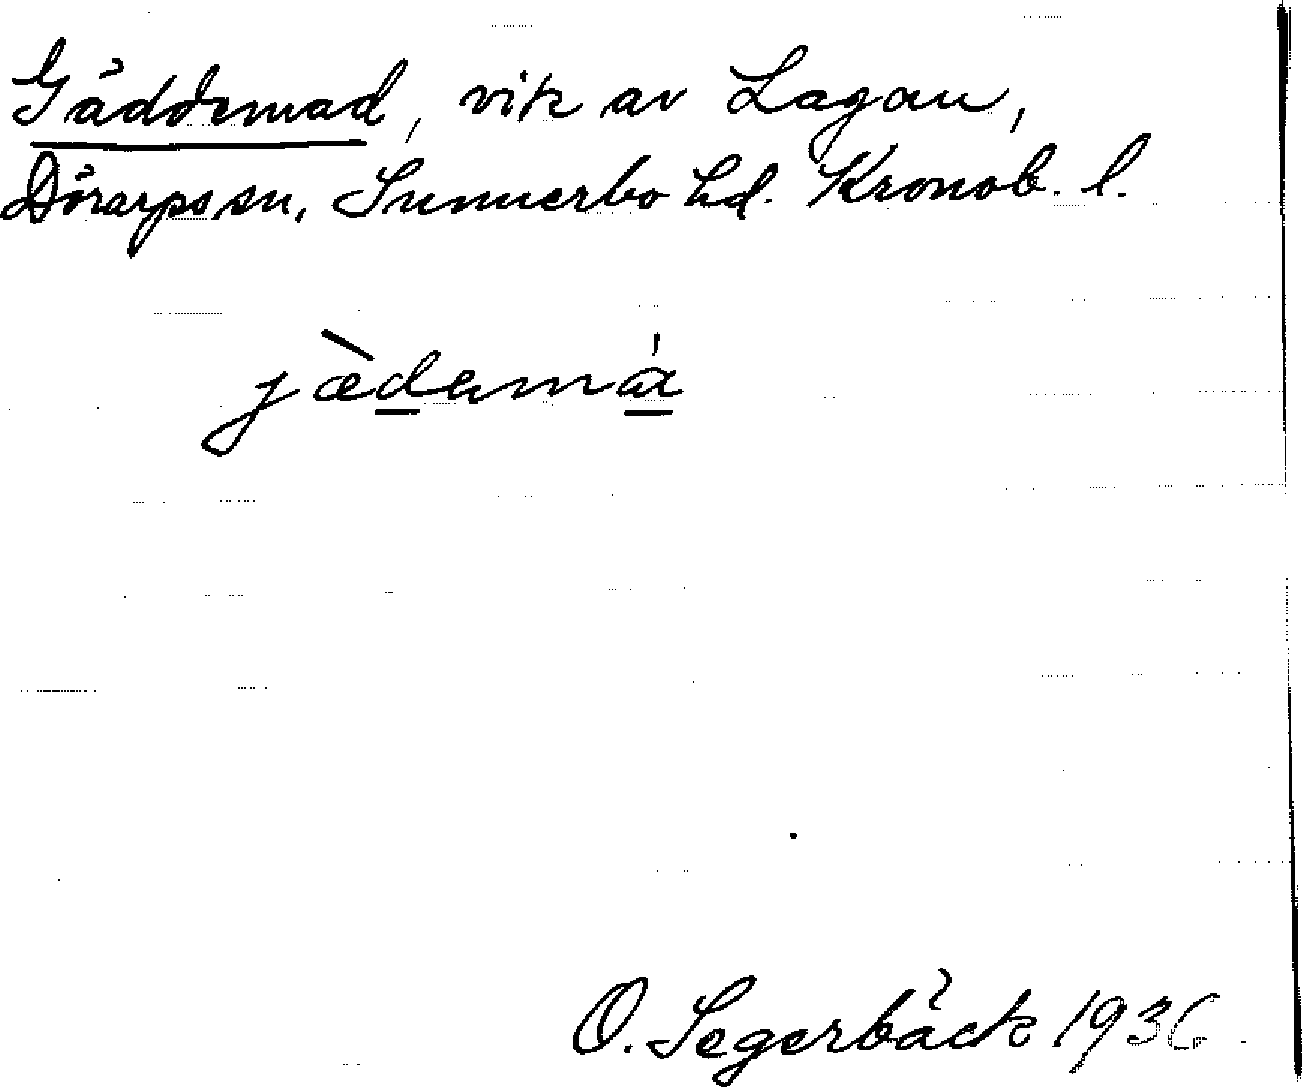 Gäddemad, vik av Lagan,
Dörarps sn, Sunnerbo hd. Kronob. l.
jæ̀demá
O. Segerbäck 1936